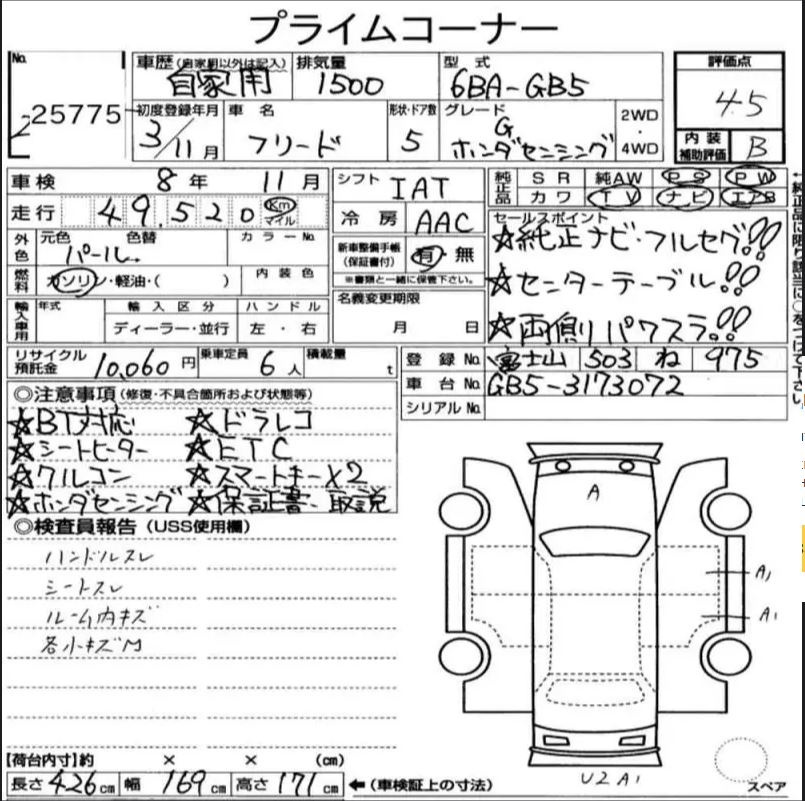 プライムコーナー
No.
25775
車歴(自家用以外は記入)
自家用
排気量
1500
型式
6BA-GB5
評価点
4.5
初度登録年月
3/11月
車名
フリード
形状・ドア数
5
グレード
G
ホンダセンシング
2WD
・
4WD
内装
補助評価
B
車検 8年 11月
シフト IAT
純正品
SR 純AW PS PW
カワ TV ナビ エアB
走行 49,520 Km マイル
冷房 AAC
セールスポイント
☆純正ナビ・フルセグ!!
☆センターテーブル!!
☆両側パワスラ!!
外色
元色 色替
パール
カラーNo.
新車整備手帳
(保証書付)
有・無
※書類と一緒に保管下さい。
燃料
ガソリン・軽油・( )
内装色
名義変更期限
月 日
輸入車用
年式
輸入区分
ハンドル
ディーラー・並行
左・右
リサイクル
預託金
10,060円
乗車定員
6人
積載量
t
登録No. 富士山 503 ね 975
車台No. GB5-3173072
シリアルNo.
◎注意事項(修復・不具合箇所および状態等)
☆BT対応 ☆ドラレコ
☆シートヒーター ☆ETC
☆クルコン ☆スマートキーX2
☆ホンダセンシング ☆保証書・取説
◎検査員報告(USS使用欄)
ハンドルスレ
シートスレ
ルーム内キズ
各小キズM
A
A1
A1
U2 A1
スペア
【荷台内寸】約 × × (cm)
長さ426cm 幅169cm 高さ171cm ←(車検証上の寸法)